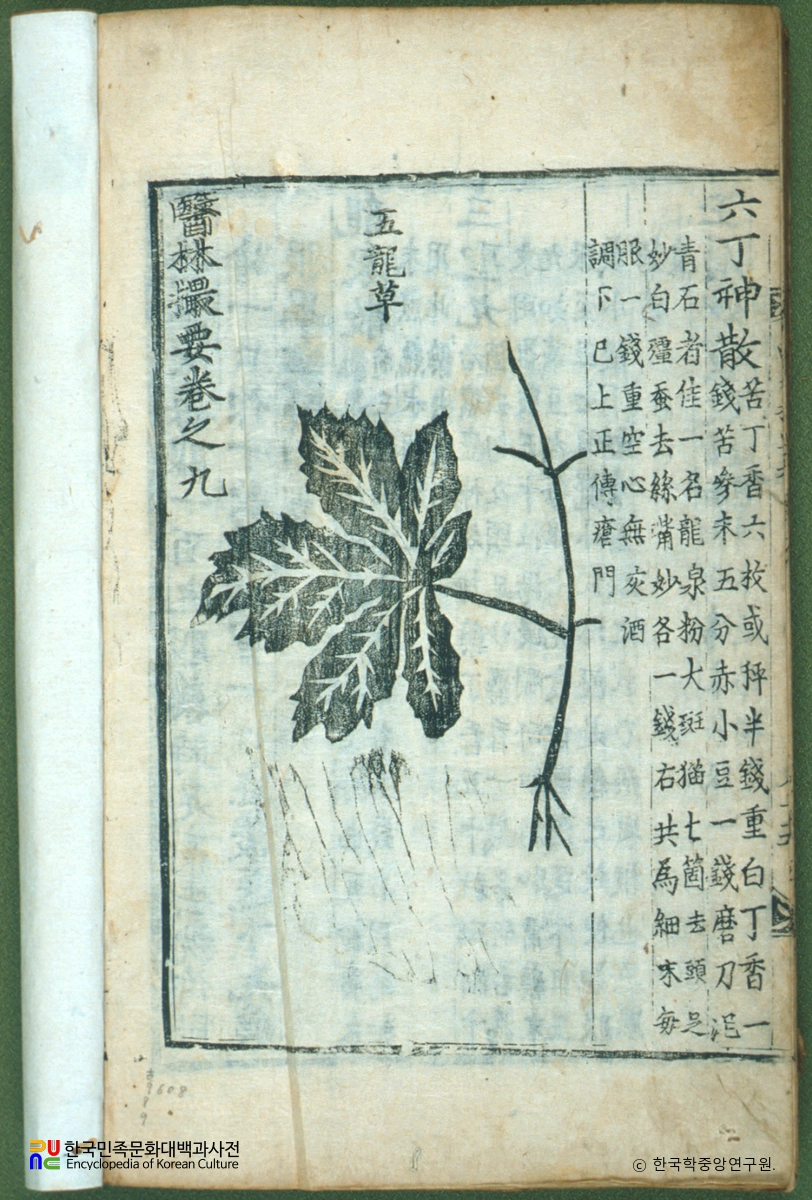 六丁神散
苦丁香六枚或秤半錢重白丁香一
錢苦參末五分赤小豆一錢磨刀泥
青石者佳一名龍泉粉大斑猫七箇去頭足
妙白殭蚕去絲嘴妙各一錢右共為細末每
服一錢重空心無灰酒
調下已上正傳瘡門
五龍草
醫林撮要卷之九
608
한국민족문화대백과사전
Encyclopedia of Korean Culture
© 한국학중앙연구원.